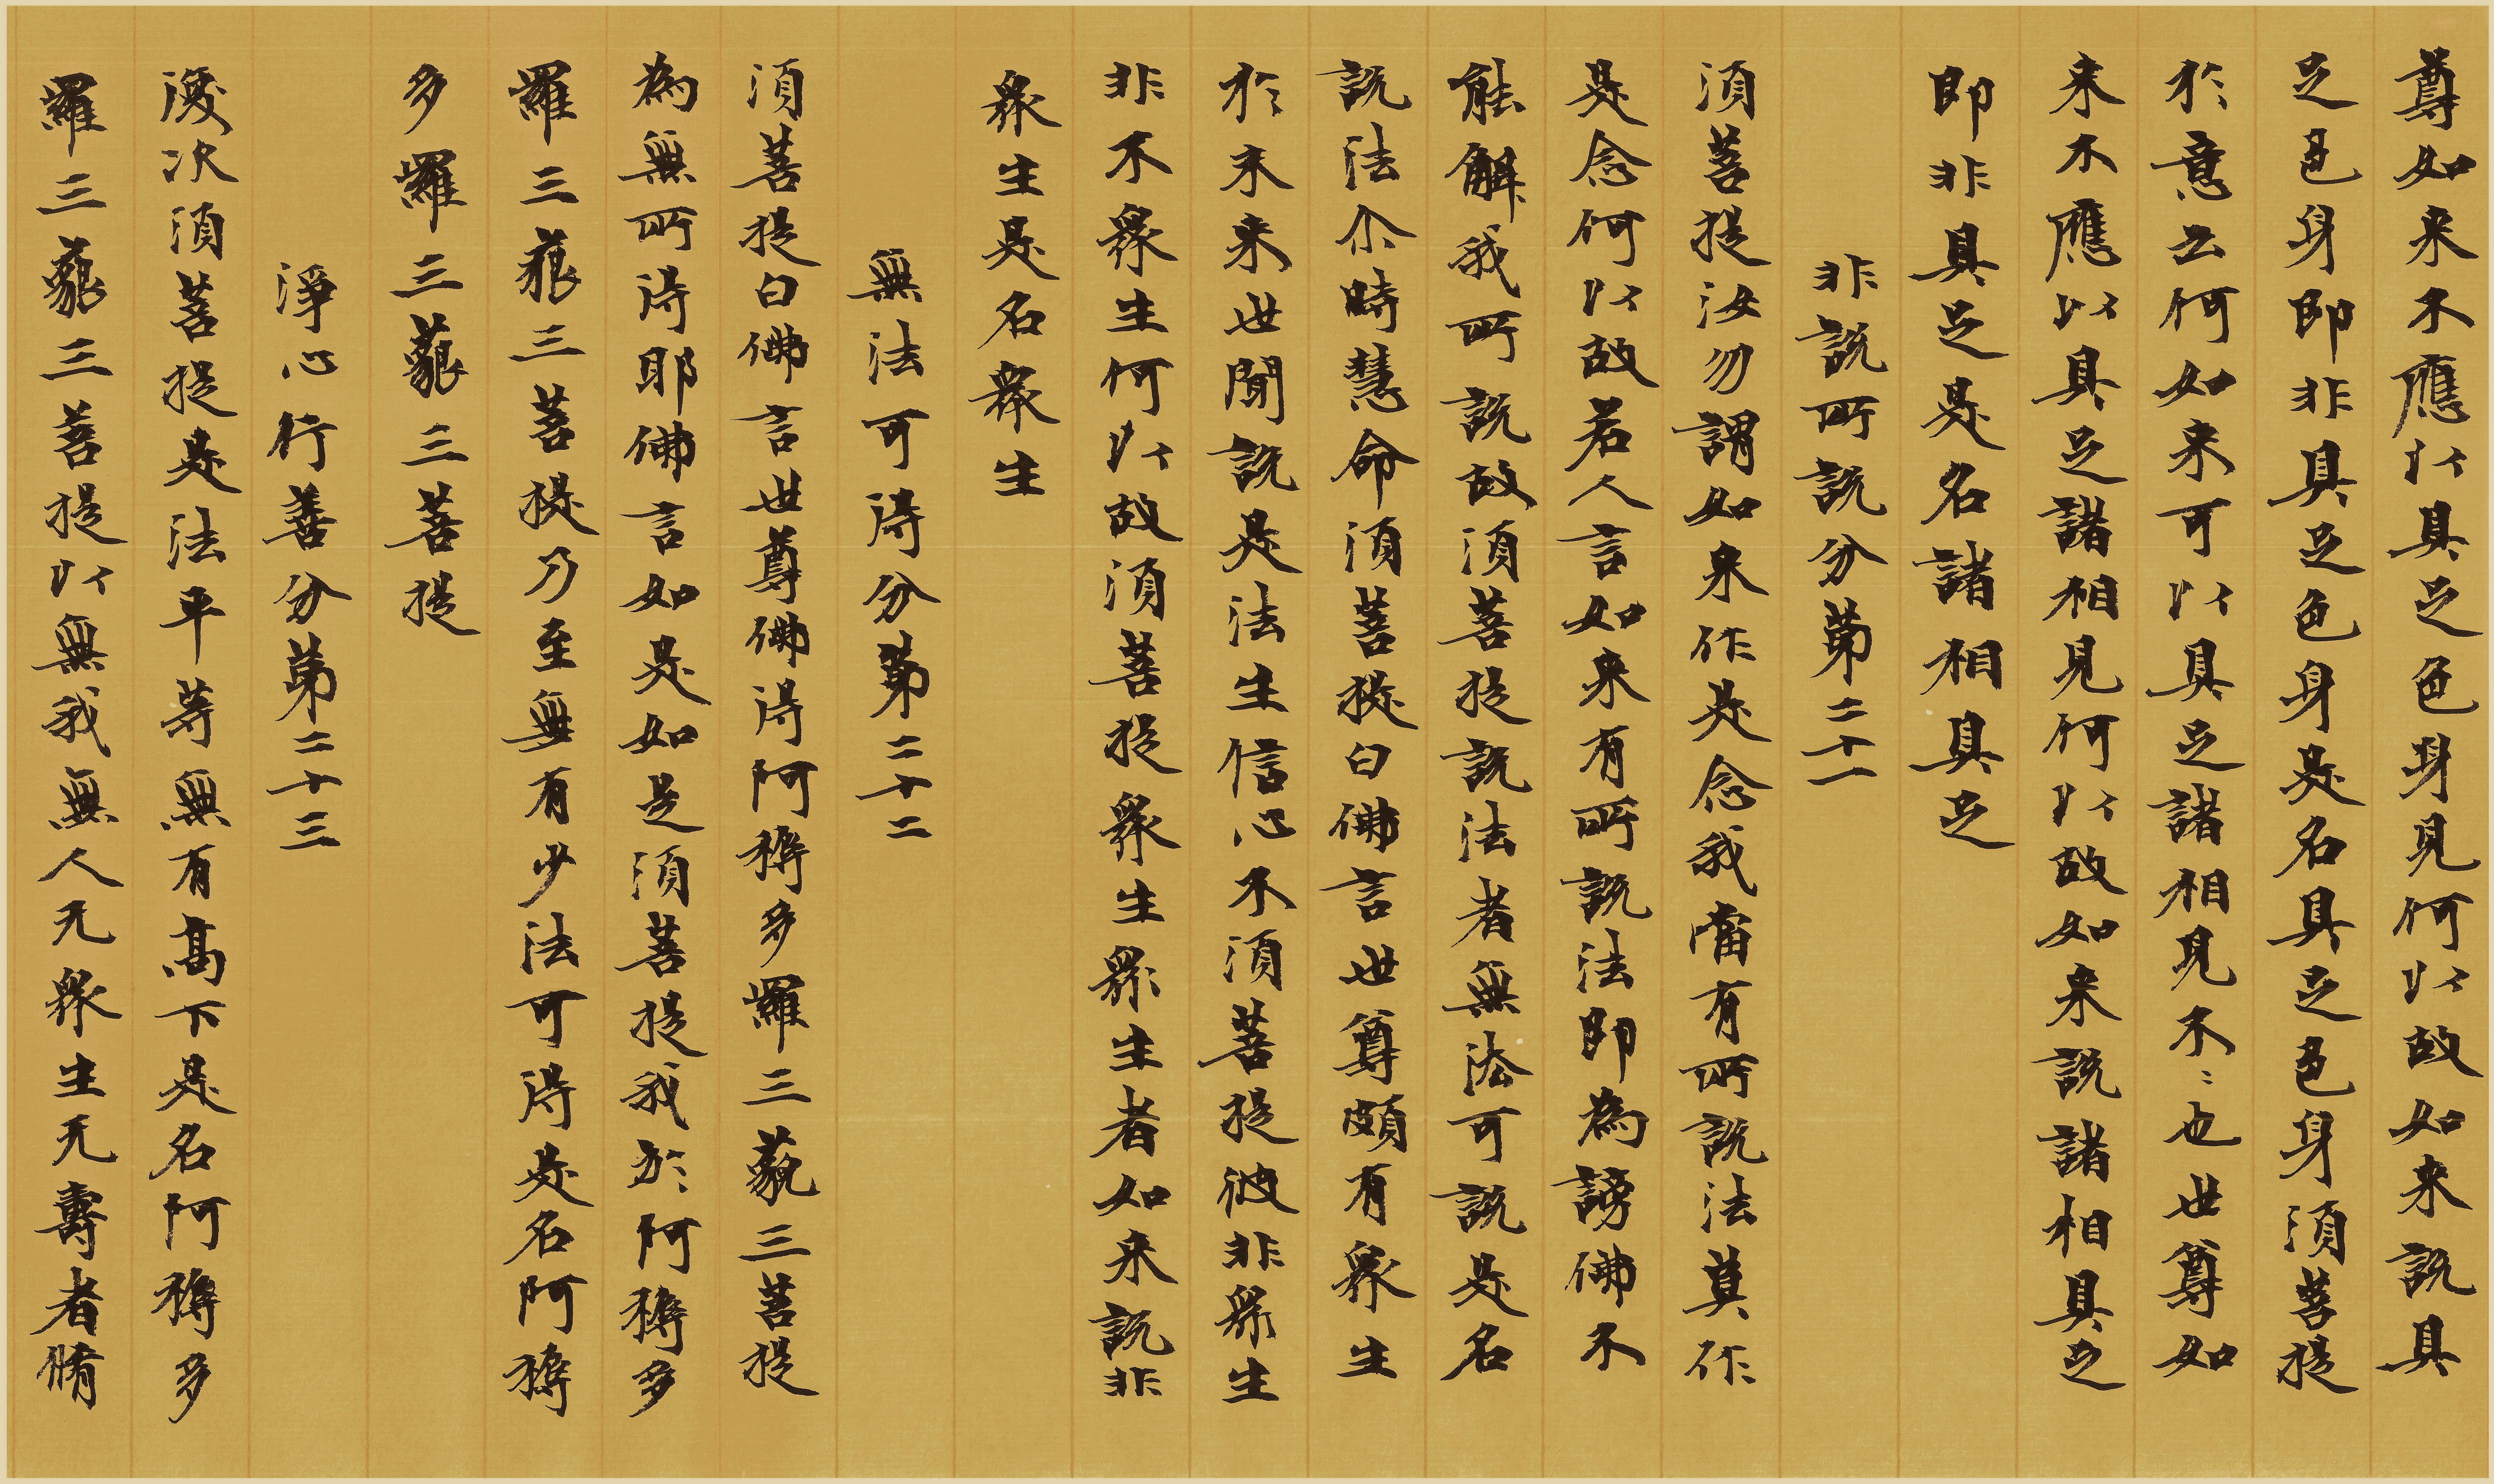 尊如来不應以具足色身見何以故如来説具
足色身即非具足色身是名具足色身須菩提
於意云何如来可以具足諸相見不不也世尊如
来不應以具足諸相見何以故如来説諸相具足
即非具足是名諸相具足
非説所説分第二十一
須菩提汝勿謂如来作是念我當有所説法莫作
是念何以故若人言如来有所説法即為謗佛不
能解我所説故須菩提説法者無法可説是名
説法尒時慧命須菩提白佛言世尊頗有衆生
於未来世聞説是法生信心不須菩提彼非衆生
非不衆生何以故須菩提衆生衆生者如来説非
衆生是名衆生
無法可得分第二十二
須菩提白佛言世尊佛得阿耨多羅三藐三菩提
為無所得耶佛言如是如是須菩提我於阿耨多
羅三藐三菩提乃至無有少法可得是名阿耨
多羅三藐三菩提
淨心行善分第二十三
復次須菩提是法平等無有高下是名阿耨多
羅三藐三菩提以無我無人无衆生无壽者脩